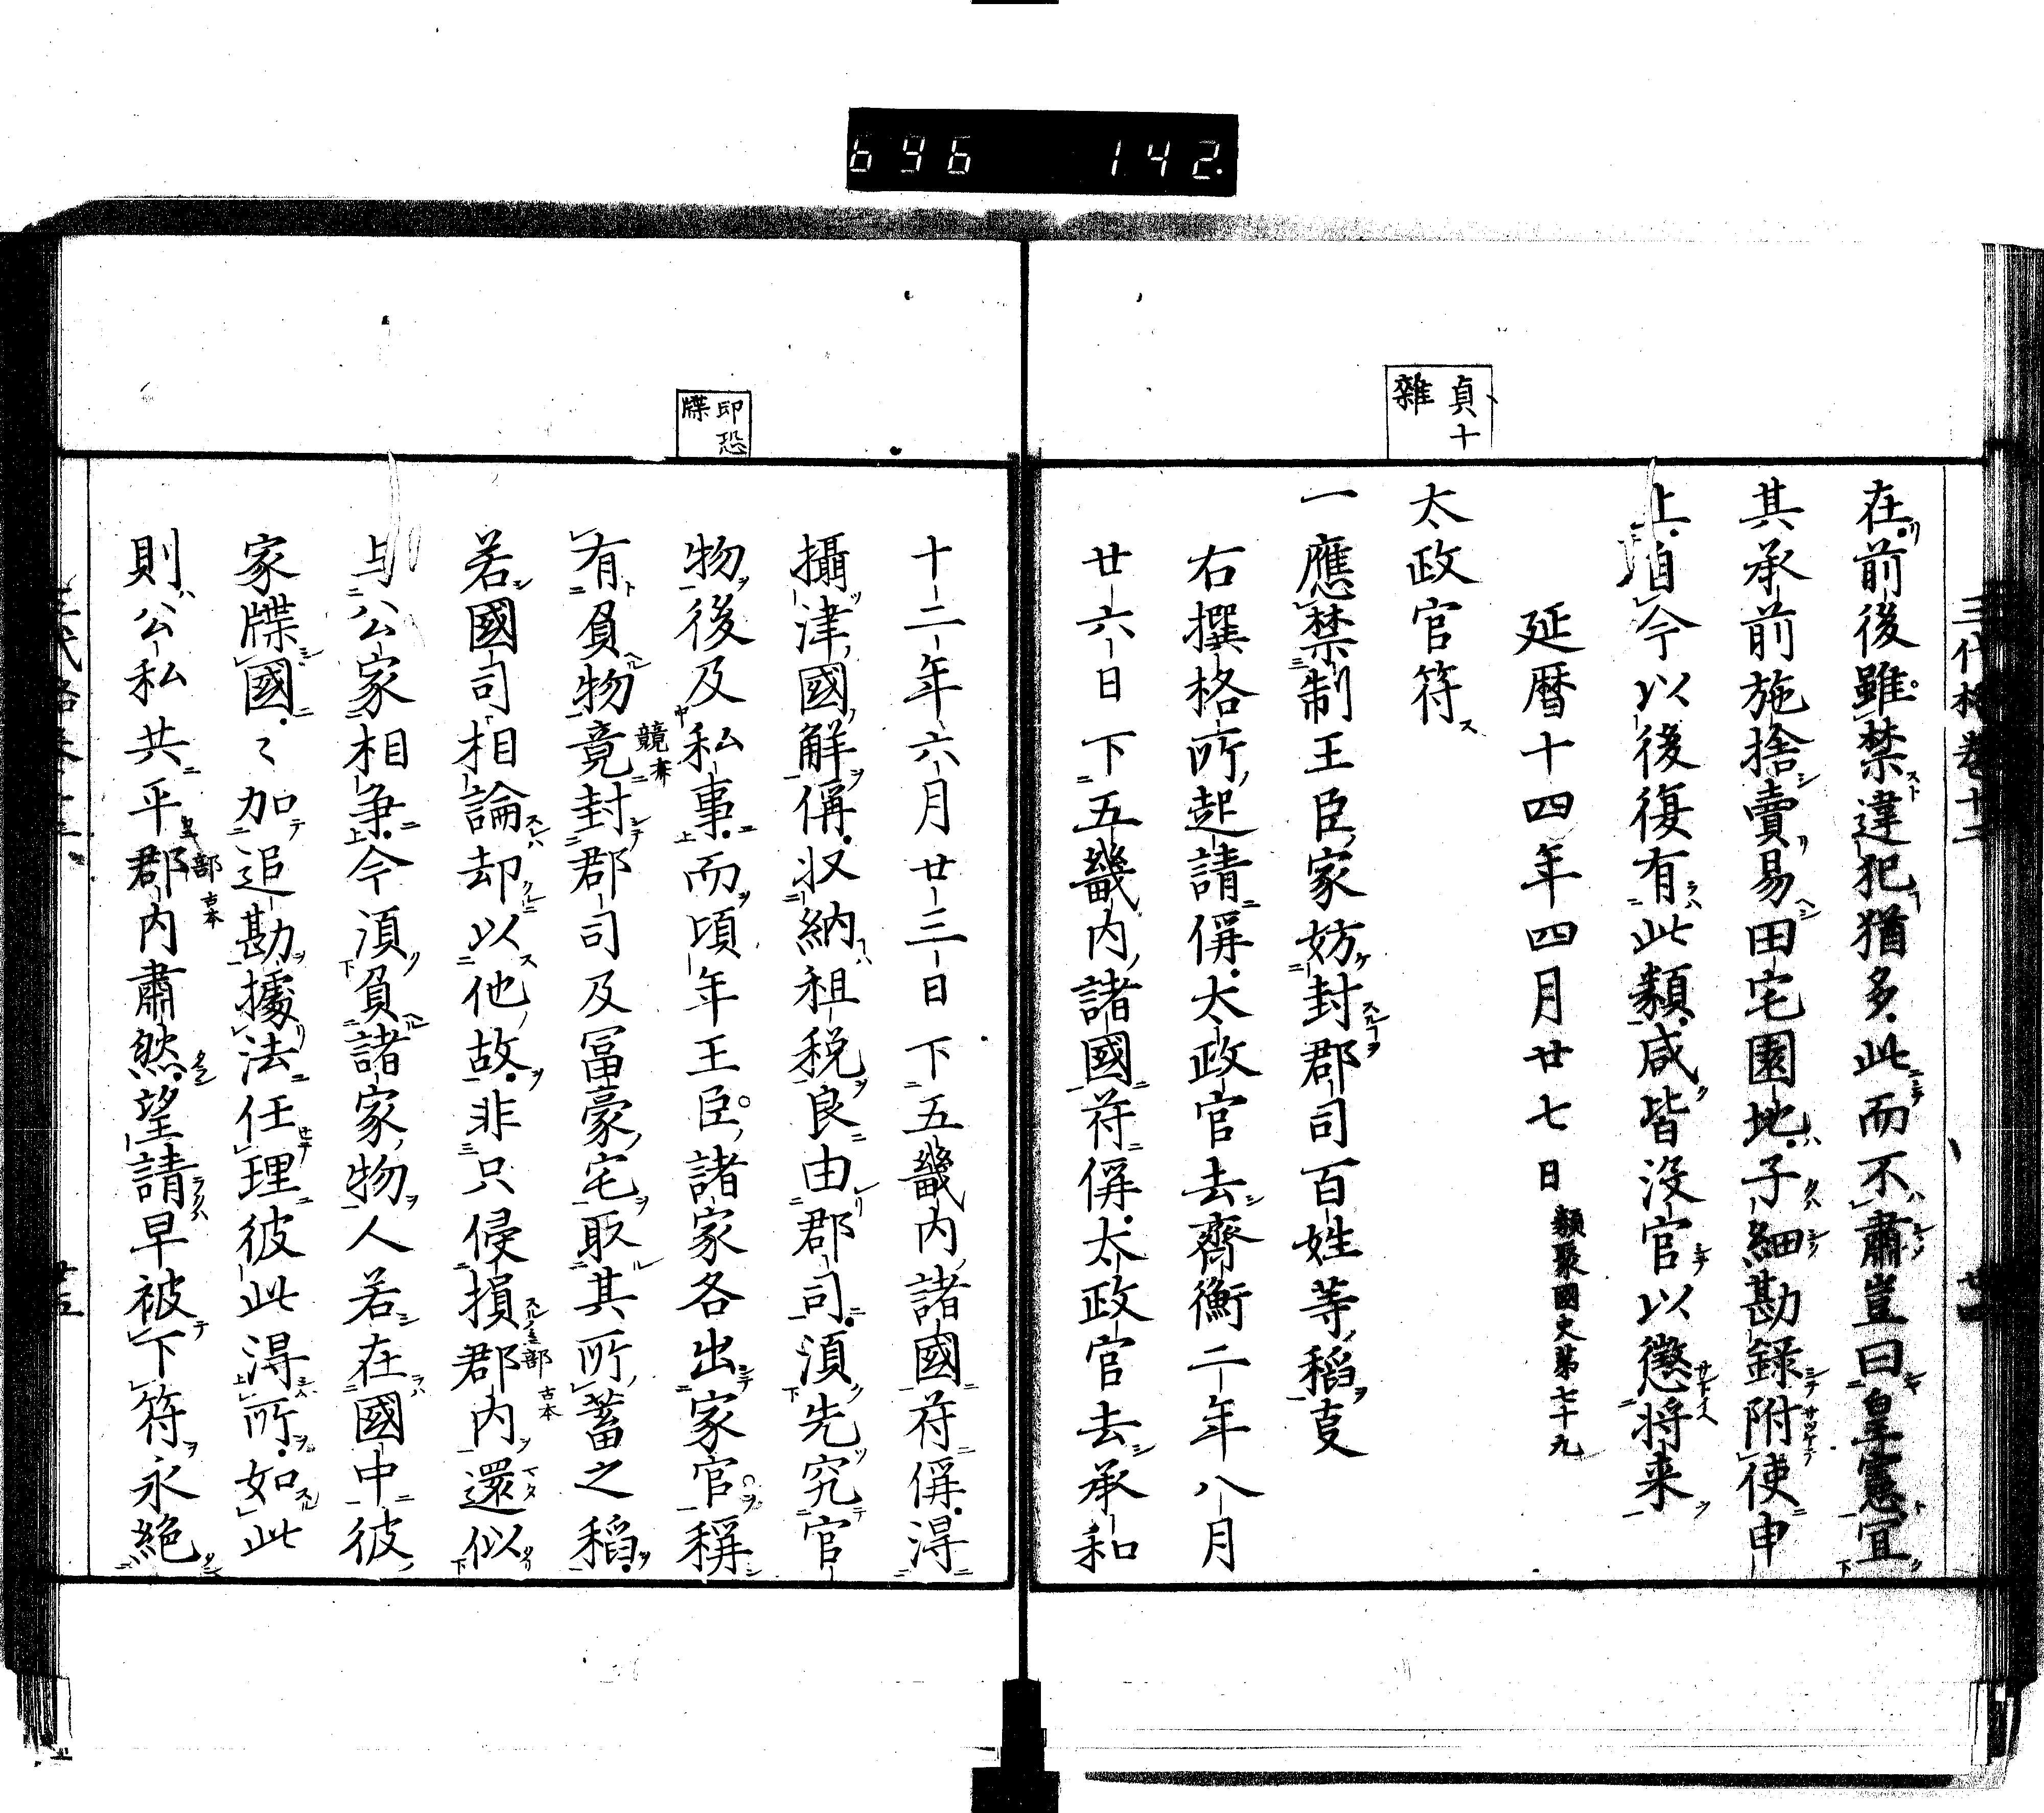 696 142.
三代格卷十二
在前後雖禁違犯猶多此而不肅豈曰皇憲宜
其承前施捨賣易田宅園地子細勘録附使申
上自今以後復有此類咸皆没官以懲将来
延暦十四年四月廿七日 類聚國史第七十九
貞十
雜
太政官符
一應禁制王臣家妨封郡司百姓等稻㕝
右撰格所起請偁太政官去齊衡二年八月
廿六日下五畿内諸國符偁太政官去承和
十二年六月廿三日下五畿内諸國符偁淂
攝津國解偁収納租税良由郡司湏先究官
印恐
牒
物後及私事而頃年王臣諸家各出家官稱
有負物竟封郡司及冨豪宅取其所蓄之稻
競 古本
若國司相論却以他故非只侵損郡内還似
部 古本
与公家相争今湏負諸家物人若在國中彼
家牒國〻加追勘據法任理彼此淂所如此
則公私共平郡内肅然望請早被下符永絶
部 古本